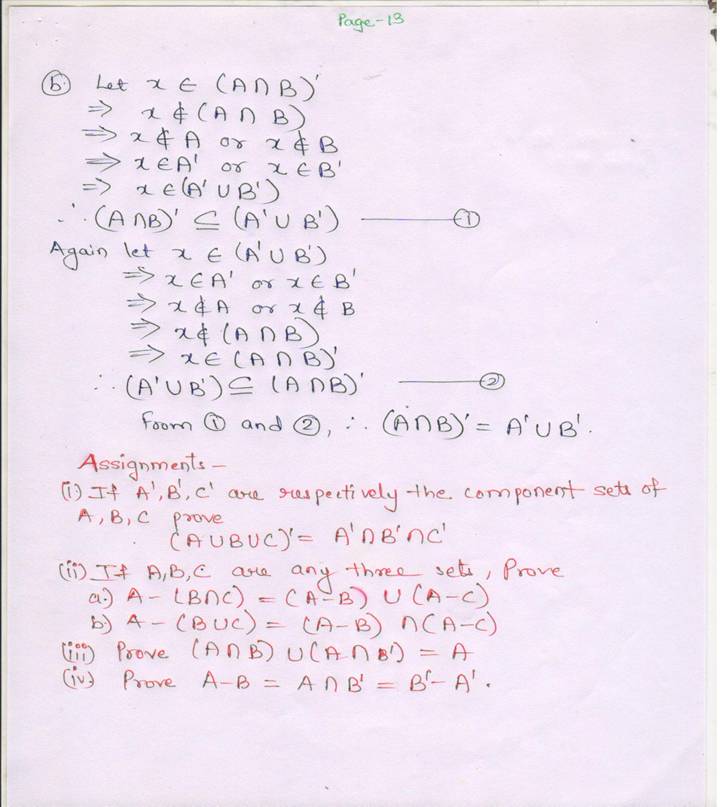 Page-13
(b.) Let x ∈ (A∩B)'
⇒ x ∉ (A∩B)
⇒ x ∉ A or x ∉ B
⇒ x ∈ A' or x ∈ B'
⇒ x ∈ (A' ∪ B')
∴ (A∩B)' ⊆ (A' ∪ B') ——— ①
Again let x ∈ (A' ∪ B')
⇒ x ∈ A' or x ∈ B'
⇒ x ∉ A or x ∉ B
⇒ x ∉ (A∩B)
⇒ x ∈ (A∩B)'
∴ (A' ∪ B') ⊆ (A∩B)' ——— ②
From ① and ②, ∴ (A∩B)' = A' ∪ B'.
Assignments –
(i) If A', B', C' are respectively the component sets of
A, B, C prove
(A∪B∪C)' = A'∩B'∩C'
(ii) If A,B,C are any three sets, Prove
a.) A – (B∩C) = (A–B) ∪ (A–C)
b.) A – (B∪C) = (A–B) ∩ (A–C)
(iii) Prove (A∩B) ∪ (A∩B') = A
(iv) Prove A–B = A∩B' = B'–A'.